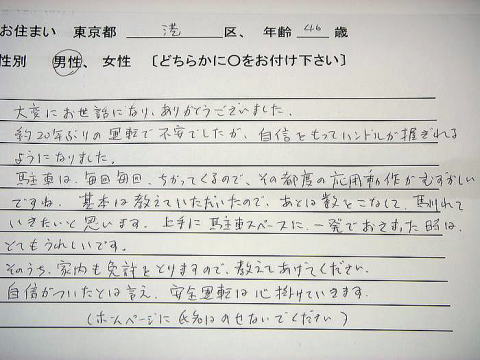 お住まい 東京都 港 区、 年齢 46 歳
性別 男性、 女性 〔どちらかに〇をお付け下さい〕
大変にお世話になり、ありがとうございました。
約20年ぶりの運転で不安でしたが、自信をもってハンドルが握ぎれる
ようになりました。
駐車は、毎回毎回、ちがってくるので、その都度の応用動作がむずかしい
ですね。 基本は教えていただいたので、あとは数をこなして、馴れて
いきたいと思います。 上手に駐車スペースに、一発でおさまった時は、
とてもうれしいです。
そのうち、家内も免許をとりますので、教えてあげてください。
自信がついたとは言え、安全運転は心掛けていきます。
(ホームページに氏名はのせないでください)